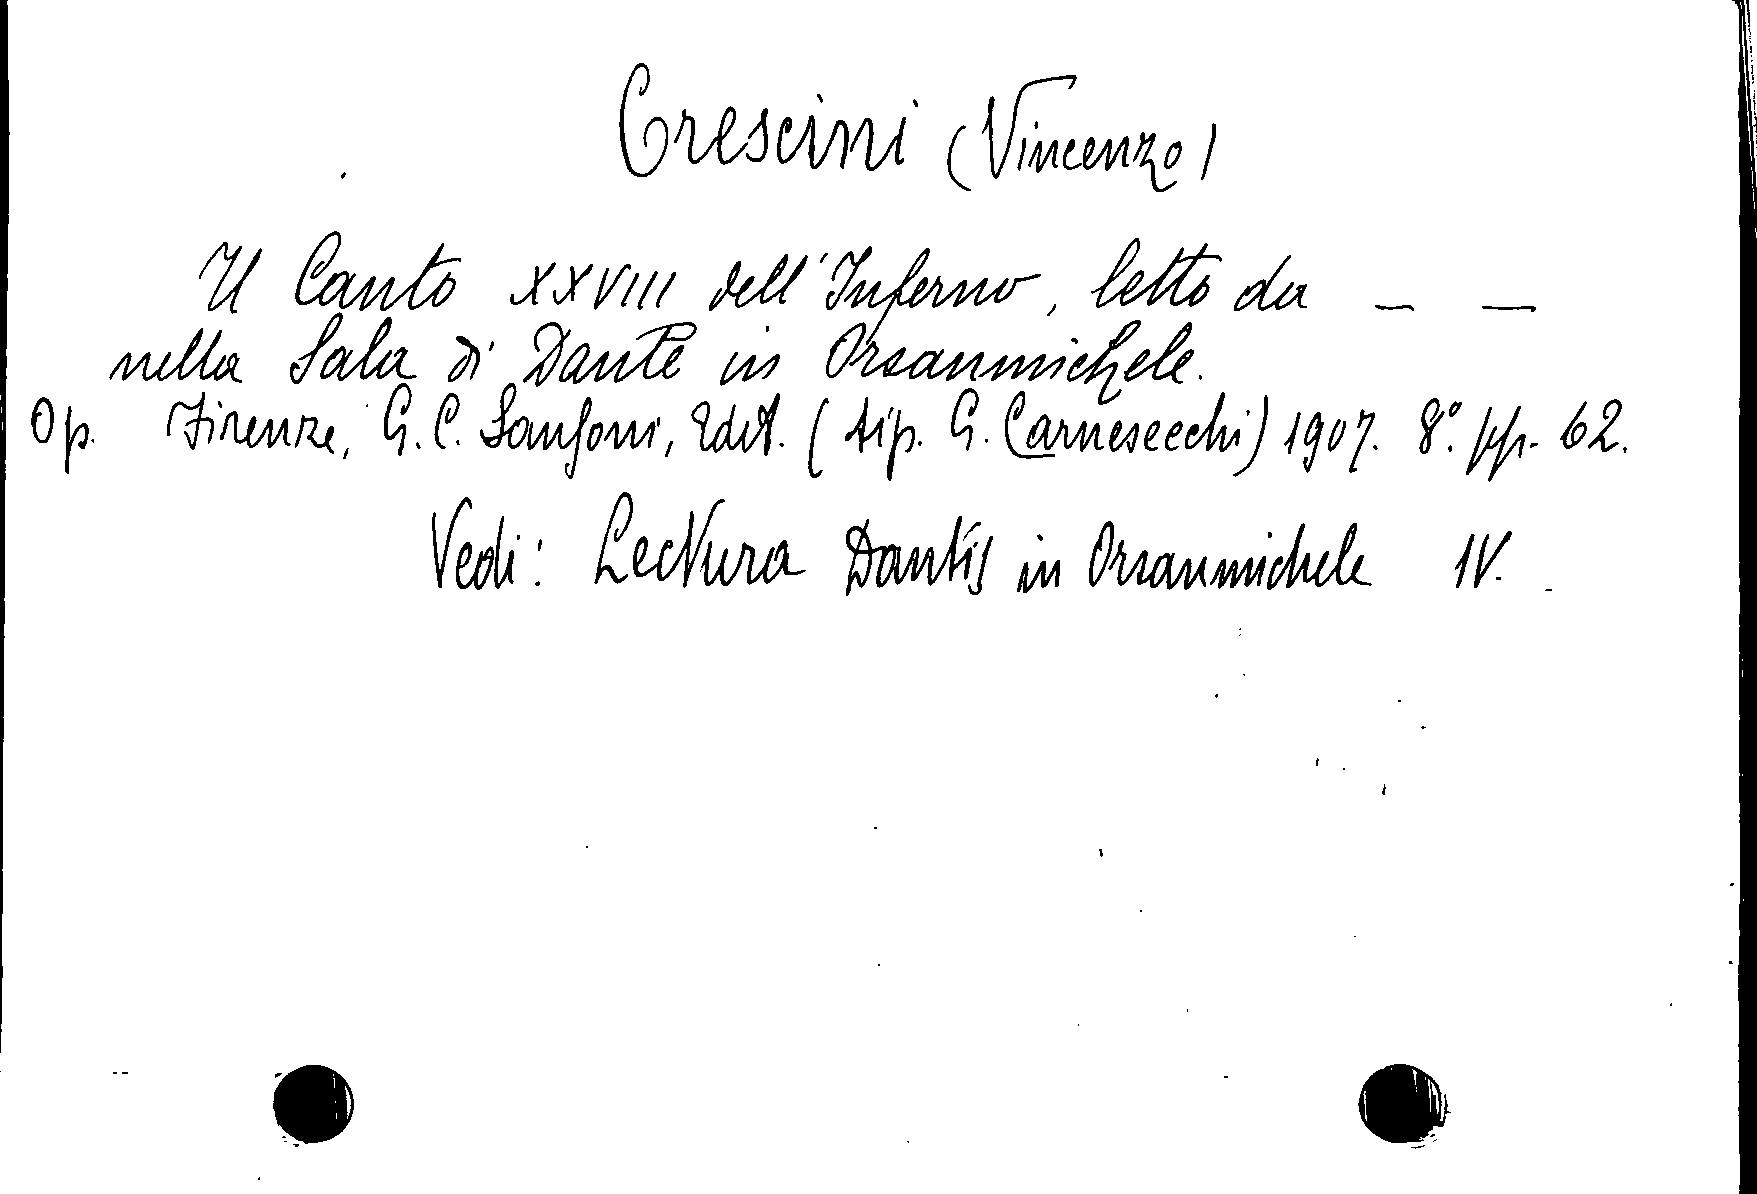 Crescini (Vincenzo)
Il Canto XXVIII dell'Inferno, letto da — —
nella Sala di Dante in Orsanmichele.
Op. Firenze, G. C. Sansoni, Edit. (tip. G. Carnesecchi) 1907. 8° pp. 62.
Vedi: Lectura Dantis in Orsanmichele IV.